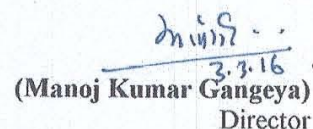 3.3.16
(Manoj Kumar Gangeya)
Director